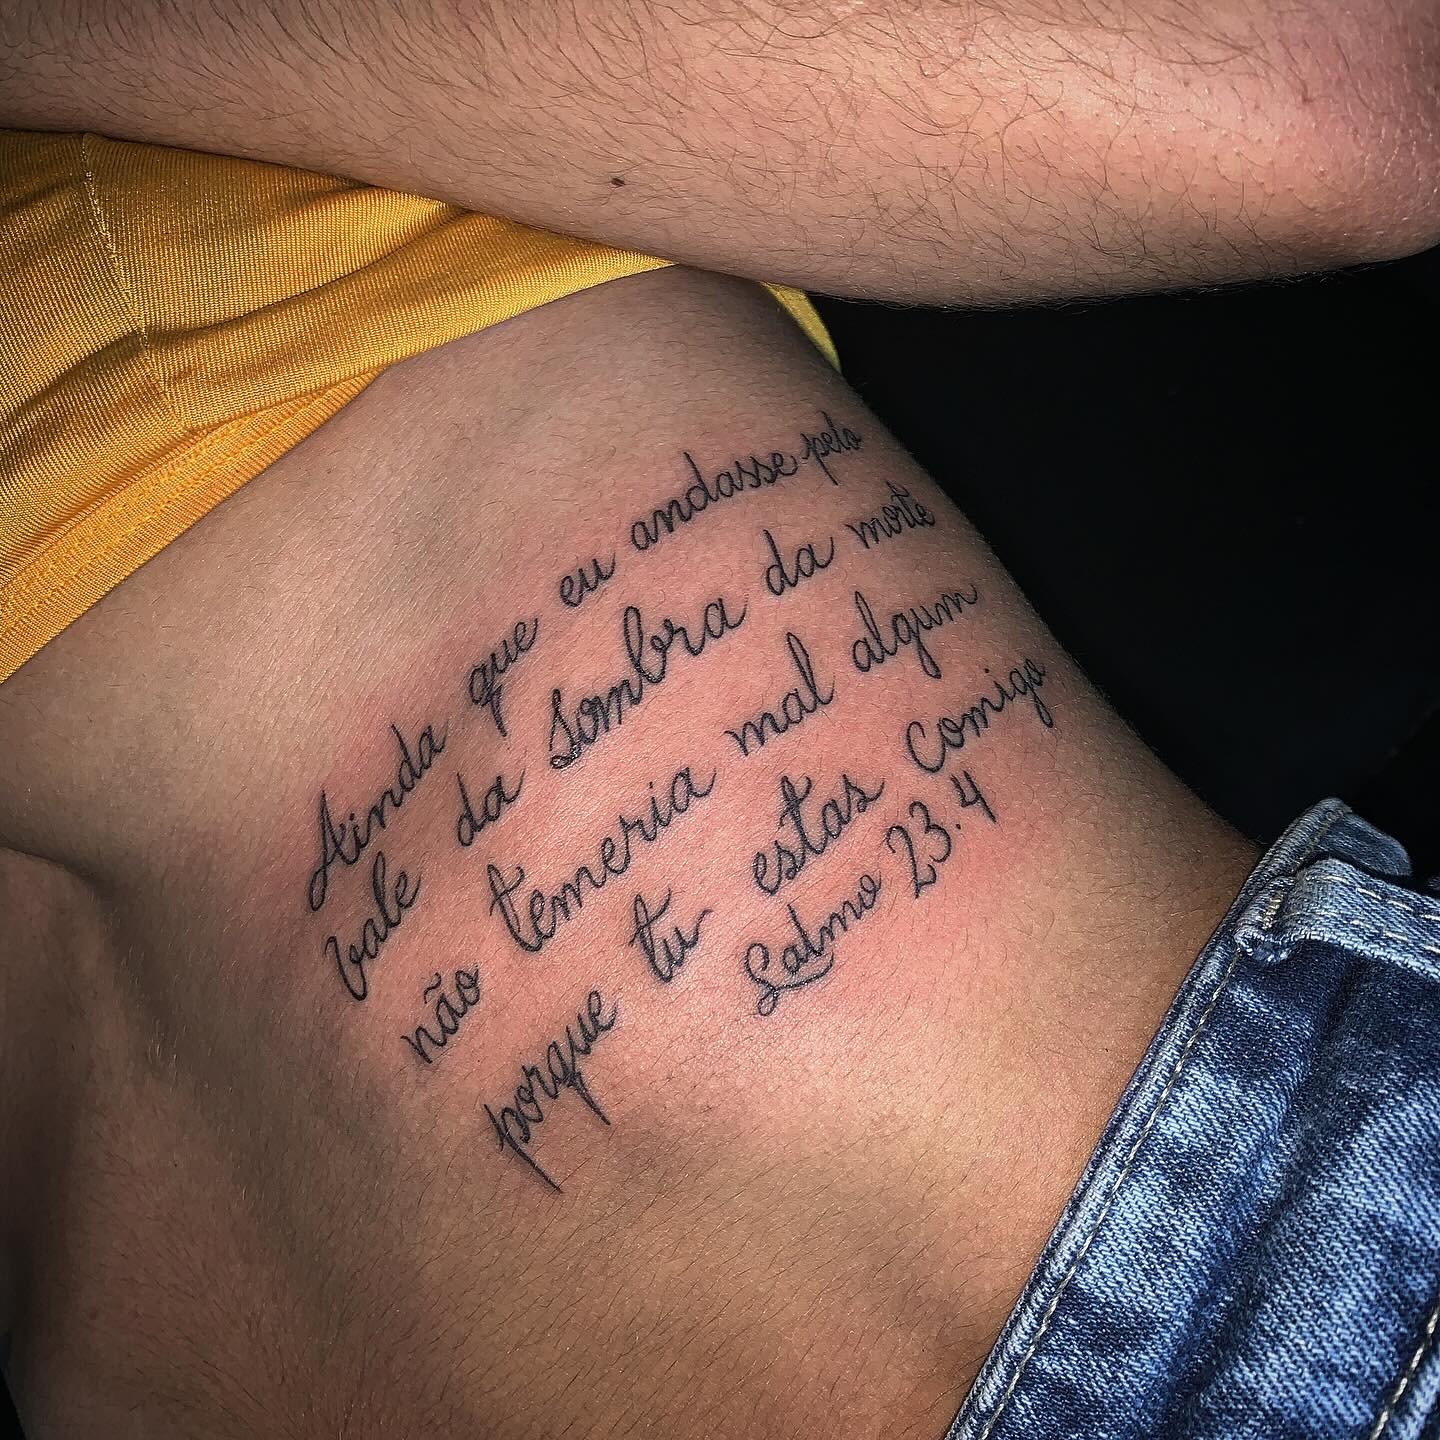 Ainda que eu andasse pelo
vale da sombra da morte
não temeria mal algum
porque tu estas comigo
Salmo 23.4